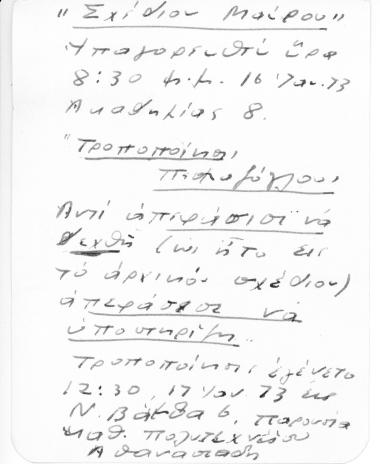 "Σχέδιον Μαύρου"
Ὑπαγορευθὲν ὥρα
8:30 μ.μ. 16 Ἰαν. 73
Ἀκαδημίας 8.
"Τροποποίησι
Πεσμαζόγλου
Αντί ἀπεφάσισε νὰ
δεχθῆ (ὡς ἦτο εἰς
τὸ ἀρχικόν σχέδιον)
ἀπεφάσισε νὰ
ὑποστηρίξη.
Τροποποίησις ἐγένετο
12:30, 17 Ἰαν 73 εἰς
Ν. Βάμβα 6, παρουσία
καθ. Πολυτεχνείου
Ἀθανασιάδη